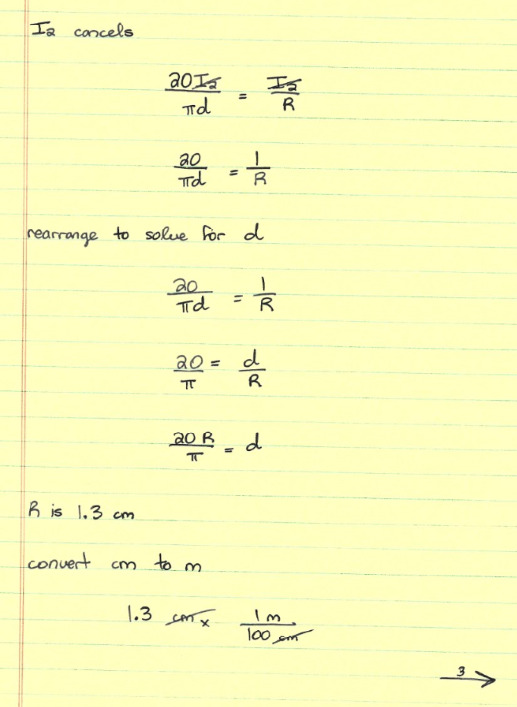 I2 cancels
20I2/πd = I2/R
20/πd = 1/R
rearrange to solve for d
20/πd = 1/R
20/π = d/R
20R/π = d
R is 1.3 cm
convert cm to m
1.3 cm x 1m/100cm
3